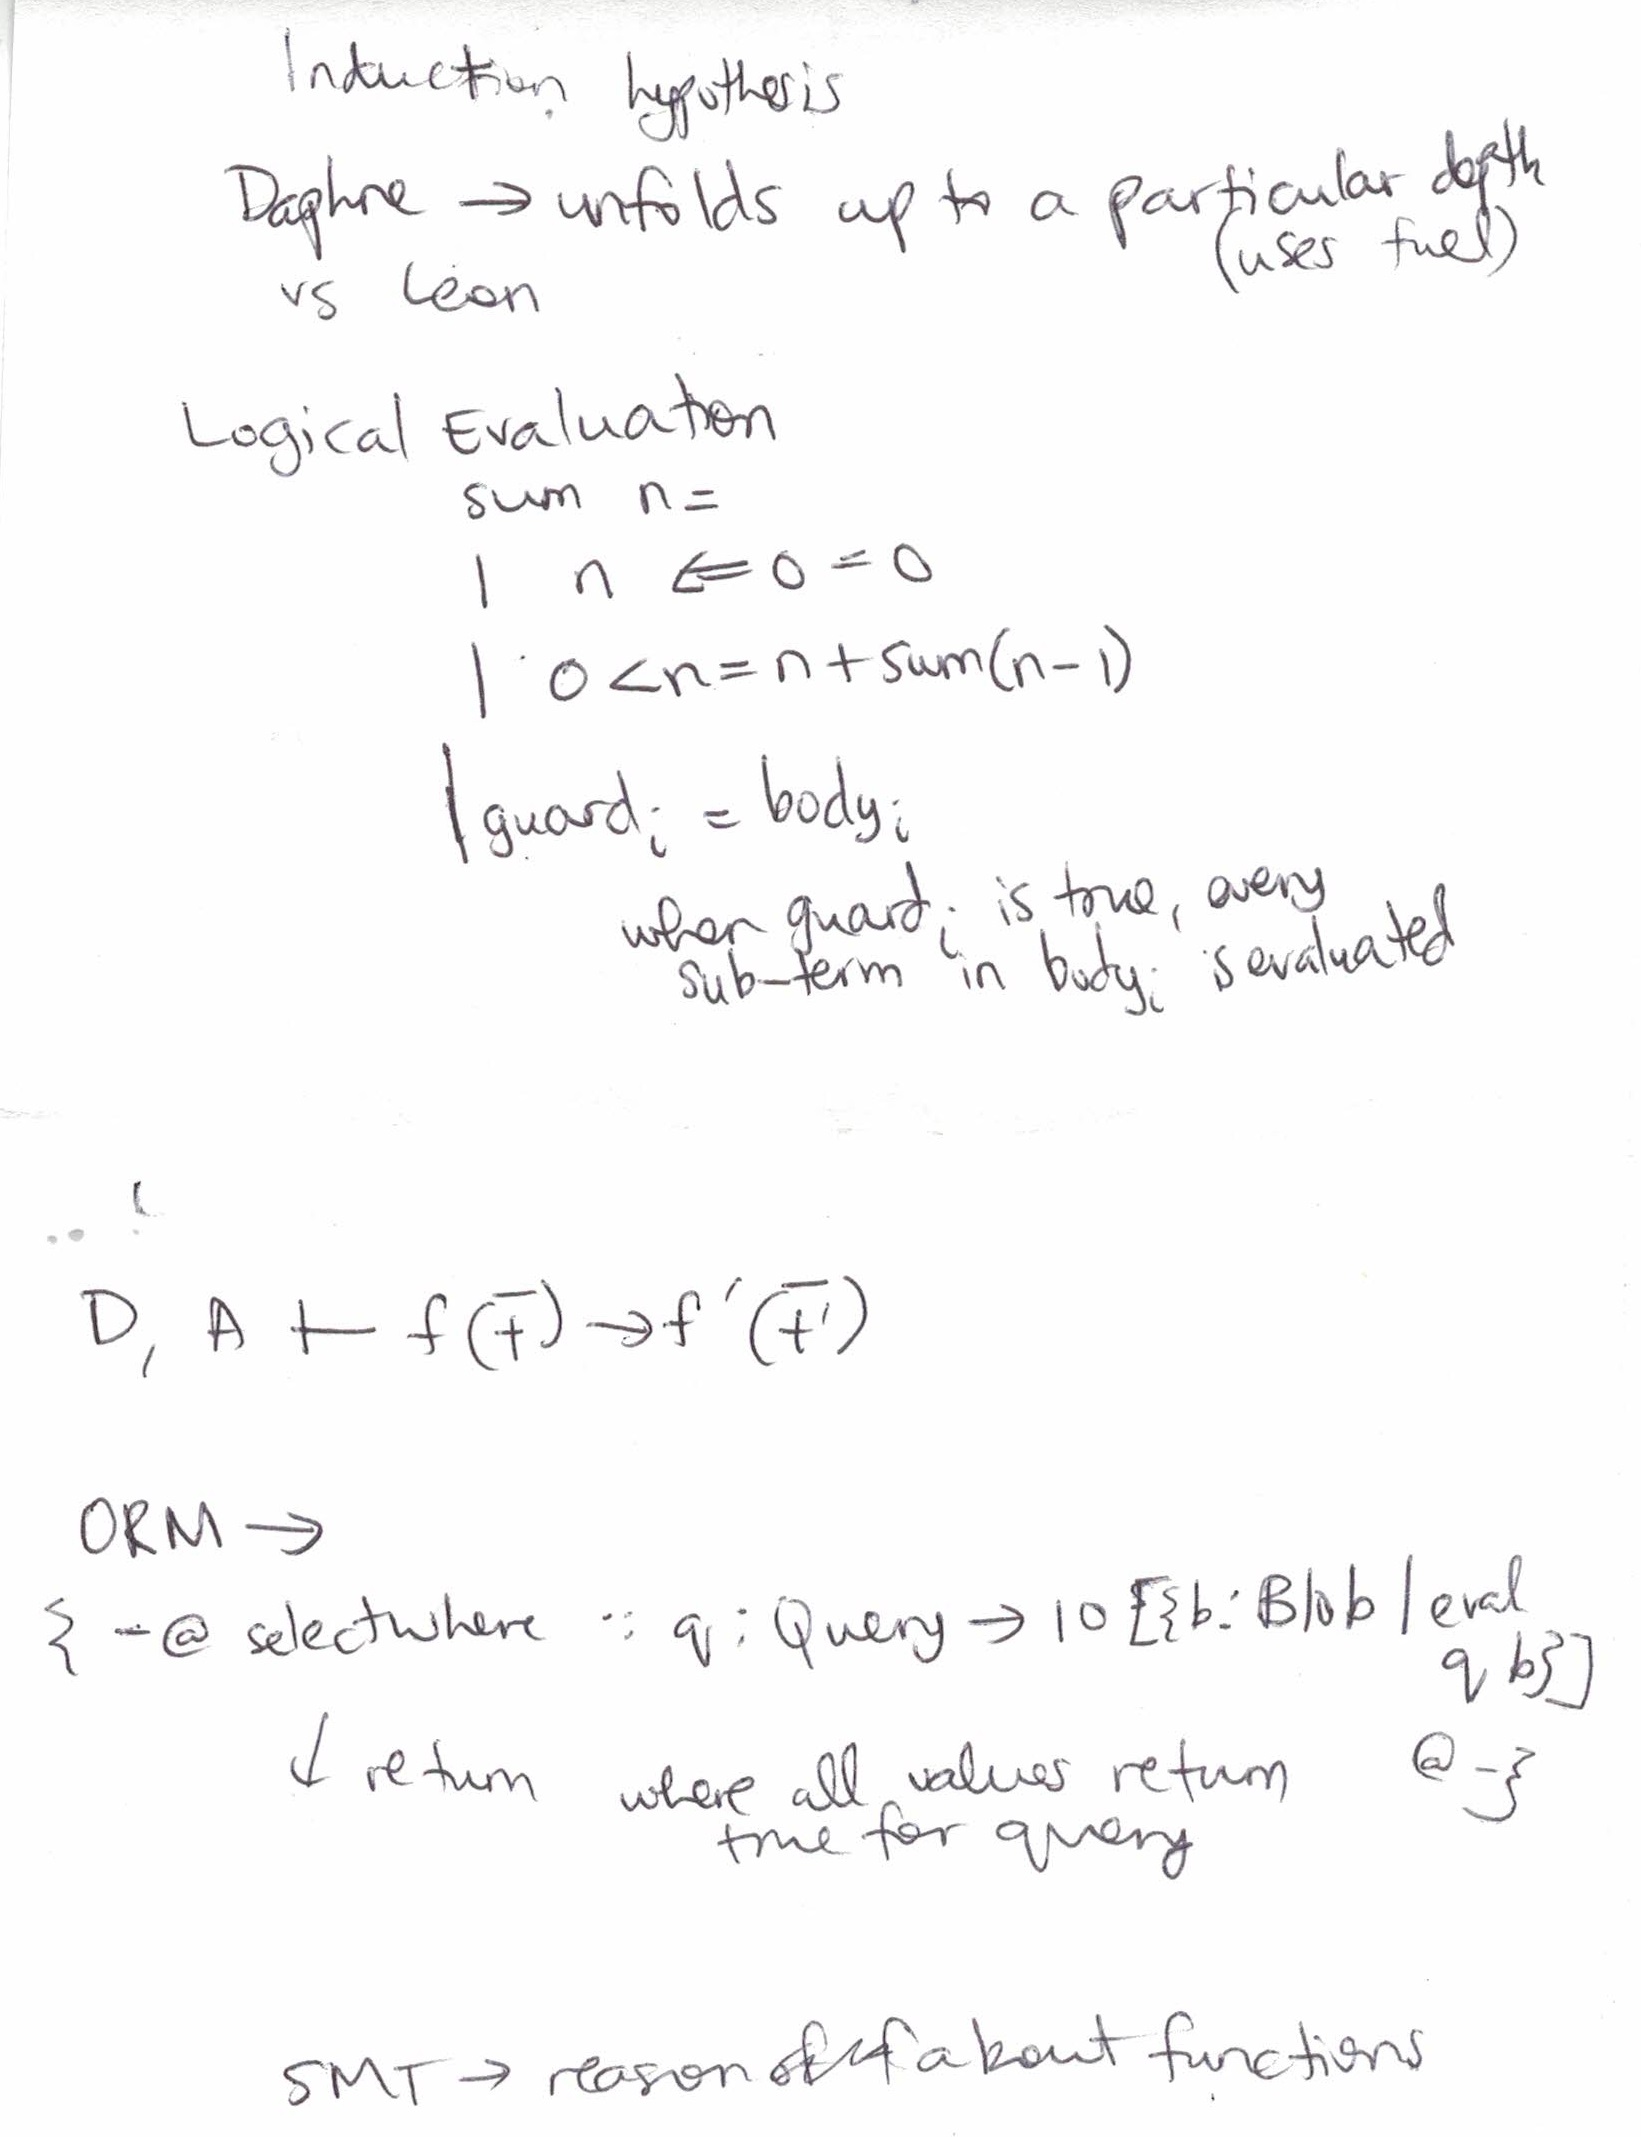 Induction hypothesis
Daphne → unfolds up to a particular depth
(uses fuel)
vs Leon
Logical Evaluation
sum n =
| n <= 0 = 0
| 0 < n = n + sum(n-1)
| guardᵢ = bodyᵢ
when guardᵢ is true, every
sub-term in bodyᵢ is evaluated
D, A ⊢ f(t̅) → f'(t̅')
ORM →
{-@ selectwhere :: q: Query → IO [{b: Blob | eval
q b}]
@-}
↓ return where all values return
true for query
SMT → reason about functions